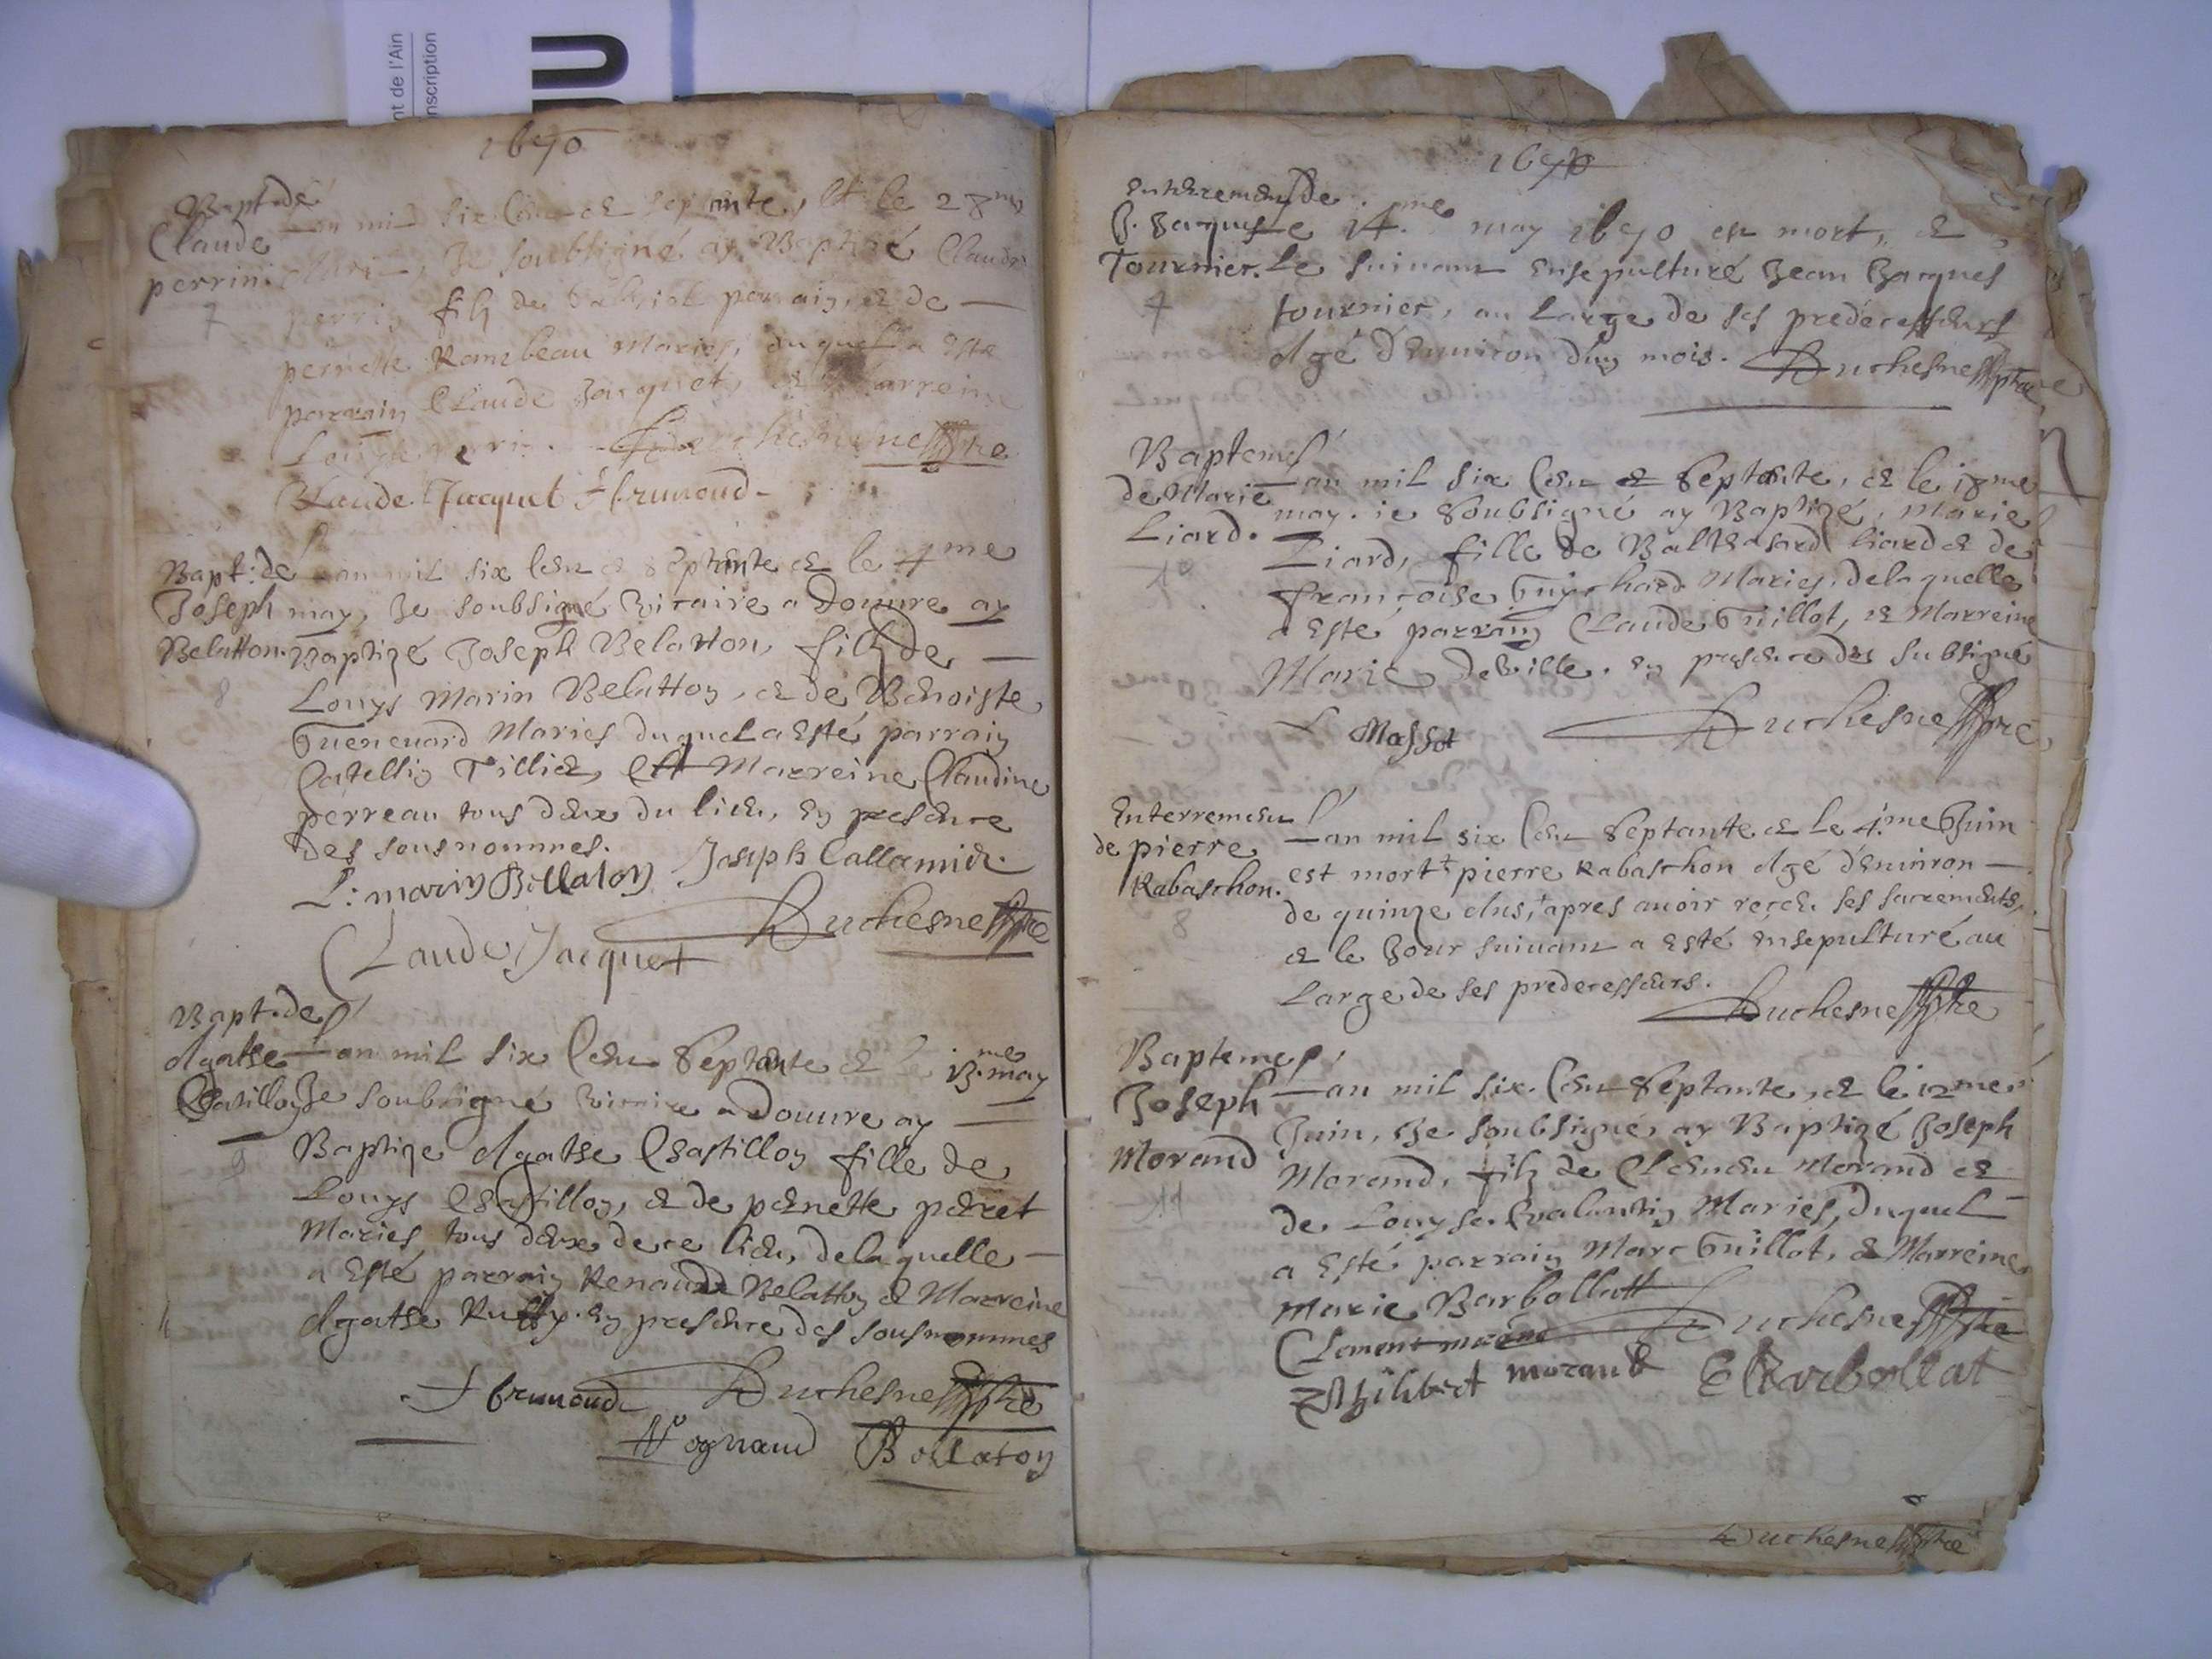 nt de l'Ain
nscription
DU
1670
Bapt. de
Claude
perrin
7
an mil six Cent et septante, Et le 28me
Je soubsigné ay Baptizé Claude
perrin filz de Gabriel perrain, et de
pernette Rambeau Maries, duquel a Esté
parrain Claude Jacquet, et Marreine
Louyse perrin. Duchesne ptre
Claude Jacquet f brunoud
Bapt. de
Joseph
Belatton.
8
L'an mil six Cent et septante et le 4me
may, Je soubsigné vicaire a Douure ay
Baptizé Joseph Belatton, filz de
Louys Marin Belatton, et de Benoiste
Guenenard Maries duquel a Esté parrain
Catellin Tillier, Et Marreine Claudine
perreau tous deux du lieu, En presence
des sousnommes.
L: marin Bellaton Joseph Callamier
Duchesne ptre
Claude Jacquet
Bapt. de
Agathe
Chatillon
9
L'an mil six Cent septante et le 13.me may
Je soubsigné vicaire a Douure ay
Baptize Agathe Chastillon fille de
Louys Chastillon, et de pernette perret
Maries tous deux de ce lieu, de laquelle
a Esté parrain Renaud Belatton et Marreine
Agathe Ruffy. En presence des sousnommes
f brunoud Duchesne ptre
Rognaud Bellaton
1670
Enterrement de
J. Jacques
Tournier.
4
Le 14.me may 1670 est mort, et
Le suiuant Ensepulturé Jean Jacques
tournier, au Large de ses predecesseurs
Agé D'Enuiron d'un mois. Duchesne ptre
Bapteme
de Marie
Liard.
10
L'an mil six Cent et septante, et le 18me
may. ie soubsigné ay Baptizé, Marie
Liard, fille de Balthasard liard et de
françoise Guychard Maries, de laquelle
a Esté parrain Claude Guillot, et Marreine
Marie deville. En presence des subsigné
L Massot Duchesne ptre
Enterrement
de pierre
Rabaschon.
8
L'an mil six Cent septante et Le 4.me Juin
est mort pierre Rabaschon Agé d'Enuiron
de quinze Ans, apres auoir receu ses sacrements,
et le Jour suiuant a Esté Ensepulturé au
Large de ses predecesseurs.
Duchesne ptre
Bapteme
Joseph
Morand
11
L'an mil six Cent septante, et le 12me
Juin, Je soubsigné ay Baptizé Joseph
Morand, filz de Clement Morand et
de Louyse Maries, Duquel
a Esté parrain Marc Guillot, et Marreine
Marie Barbollatt Duchesne ptre
Clement morand
Philibert morand C Barbollat
Duchesne ptre